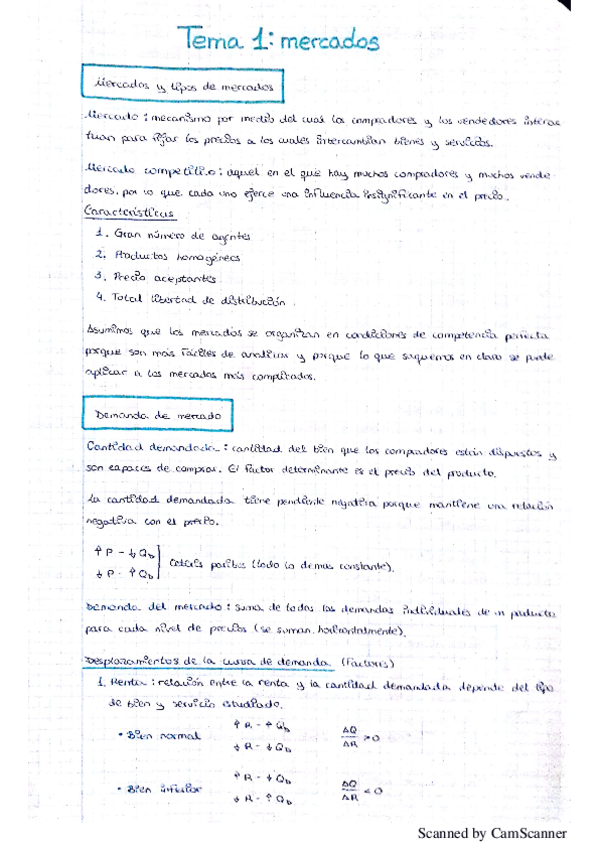 Tema 1: mercados
Mercados y tipos de mercados
Mercado: mecanismo por medio del cual los compradores y los vendedores interac
tuan para fijar los precios a los cuales intercambian bienes y servicios.
Mercado competitivo: aquel en el que hay muchos compradores y muchos vende
dores, por lo que cada uno ejerce una influencia insignificante en el precio.
Características
1. Gran número de agentes
2. Productos homogéneos
3. Precio aceptantes
4. Total libertad de distribución
Asumimos que los mercados se organizan en condiciones de competencia perfecta
porque son más fáciles de analizar y porque lo que saquemos en claro se puede
aplicar a los mercados más complicados.
Demanda de mercado
Cantidad demandada: cantidad del bien que los compradores están dispuestos y
son capaces de comprar. El factor determinante es el precio del producto.
La cantidad demandada tiene pendiente negativa porque mantiene una relación
negativa con el precio.
↑P - ↓Q_D
↓P - ↑Q_D
Ceteris paribus (todo lo demás constante).
Demanda del mercado: suma de todas las demandas individuales de un producto
para cada nivel de precios (se suman horizontalmente).
Desplazamientos de la curva de demanda (Factores)
1. Renta: relación entre la renta y la cantidad demandada depende del tipo
de bien y servicio estudiado.
• Bien normal ↑R - ↑Q_D ΔQ/ΔR > 0
↓R - ↓Q_D
• Bien inferior ↑R - ↓Q_D ΔQ/ΔR < 0
↓R - ↑Q_D
Scanned by CamScanner